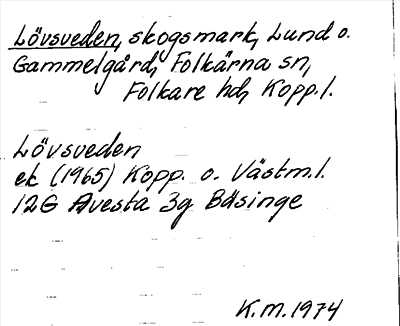 Lövsveden, skogsmark, Lund o.
Gammelgård, Folkärna sn,
Folkare hd, Kopp. l.
Lövsveden
ek (1965) Kopp. o. Västm. l.
12G Avesta 3g Bäsinge
K.M. 1974